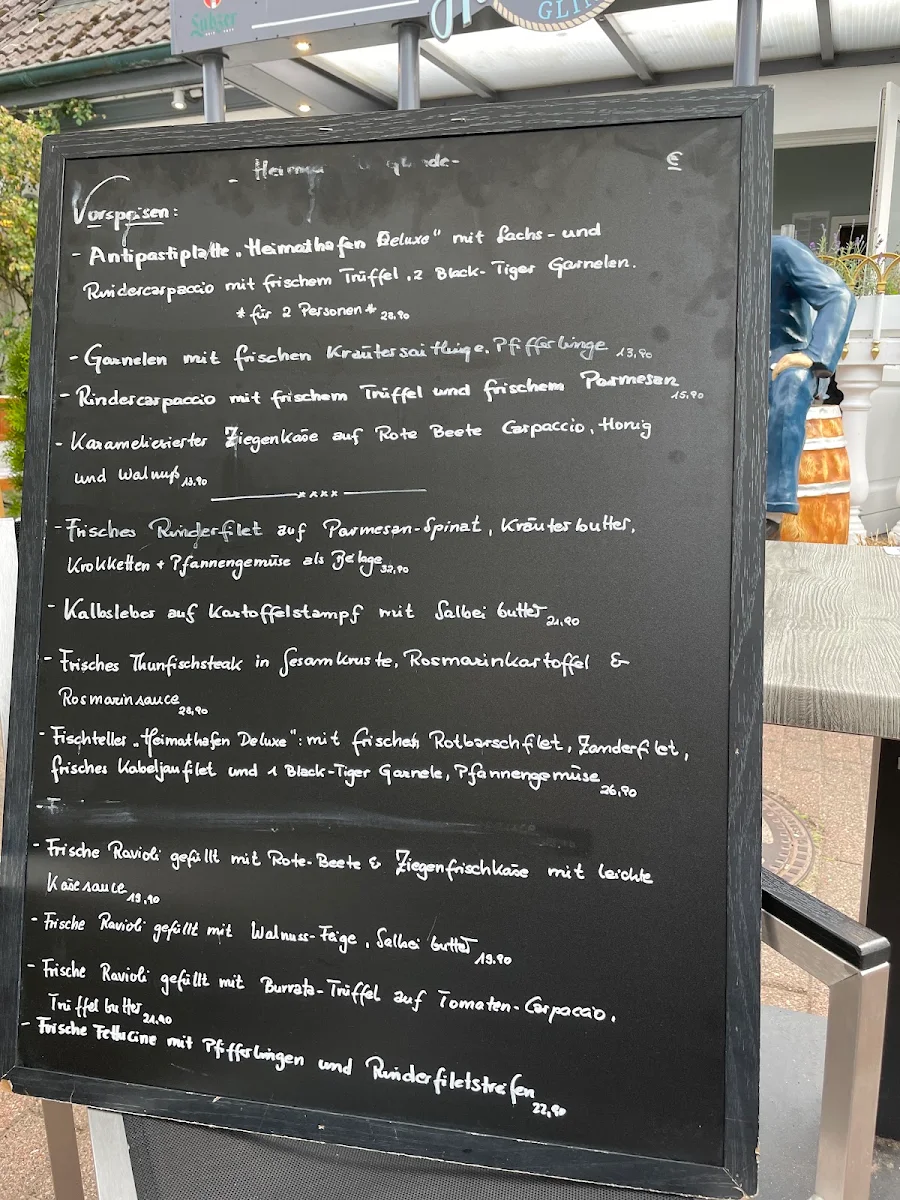 Lübzer
GLI
€
Vorspeisen:
- Antipastiplatte „Heimathafen Deluxe" mit Lachs- und
Rindercarpaccio mit frischem Trüffel, 2 Black-Tiger Garnelen.
* für 2 Personen * 28,90
- Garnelen mit frischen Kräutersaitlinge, Pfifferlinge 13,90
- Rindercarpaccio mit frischem Trüffel und frischem Parmesan 15,90
- Karamelisierter Ziegenkäse auf Rote Beete Carpaccio, Honig
und Walnuß 13,90
- Frisches Rinderfilet auf Parmesan-Spinat, Kräuterbutter,
Krokketten + Pfannengemüse als Beilage 32,90
- Kalbsleber auf Kartoffelstampf mit Salbei butter 21,90
- Frisches Thunfischsteak in Sesamkruste, Rosmarinkartoffel &
Rosmarinsauce 28,90
- Fischteller „Heimathafen Deluxe": mit frischen Rotbarschfilet, Zanderfilet,
frisches Kabeljaufilet und 1 Black-Tiger Garnele, Pfannengemüse 26,90
- Frische Ravioli gefüllt mit Rote-Beete & Ziegenfrischkäse mit leichte
Käsesauce 19,90
- Frische Ravioli gefüllt mit Walnuss-Feige, Salbei butter 19.90
- Frische Ravioli gefüllt mit Burrata-Trüffel auf Tomaten-Carpaccio,
Trüffelbutter 21,90
- Frische Fettucine mit Pfifferlingen und Rinderfiletstreifen
22,90